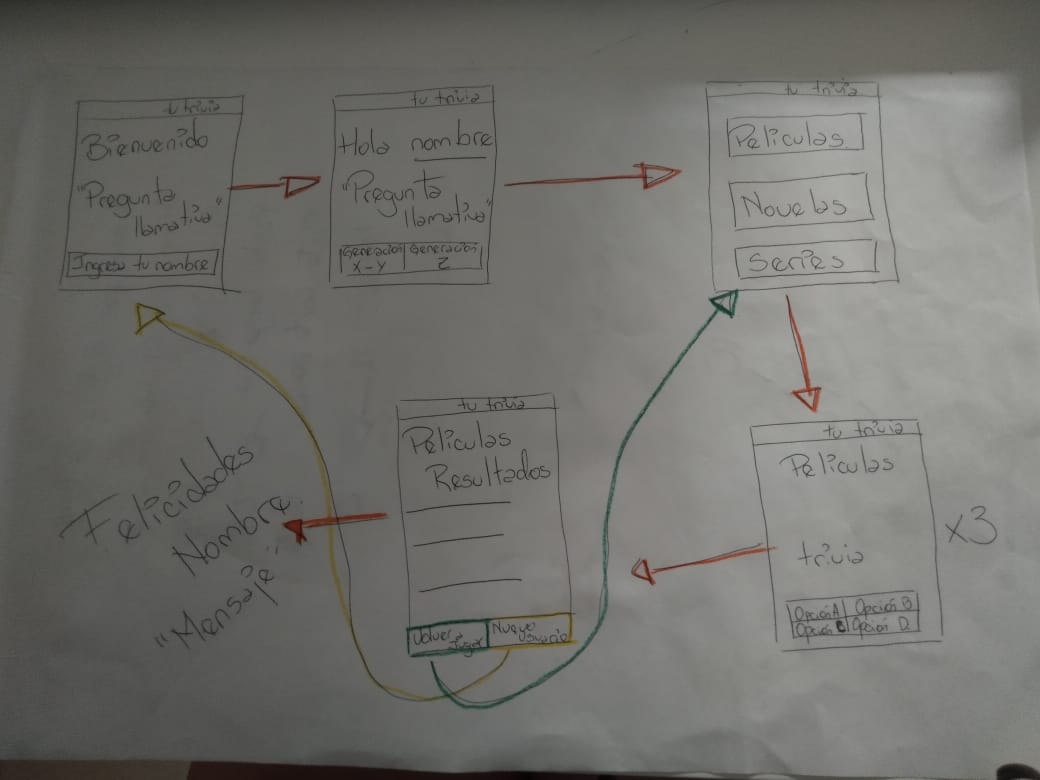 tu trivia
Bienvenido
"Pregunta
llamativa"
Ingresa tu nombre
tu trivia
Hola nombre
"Pregunta
llamativa"
Generación
X-Y
Generación
Z
tu trivia
Peliculas
Novelas
Series
tu trivia
Peliculas
trivia
Opción A
Opción B
Opción C
Opción D
x3
tu trivia
Peliculas
Resultados
Volver a
Jugar
Nuevo
usuario
Felicidades
Nombre
"Mensaje"